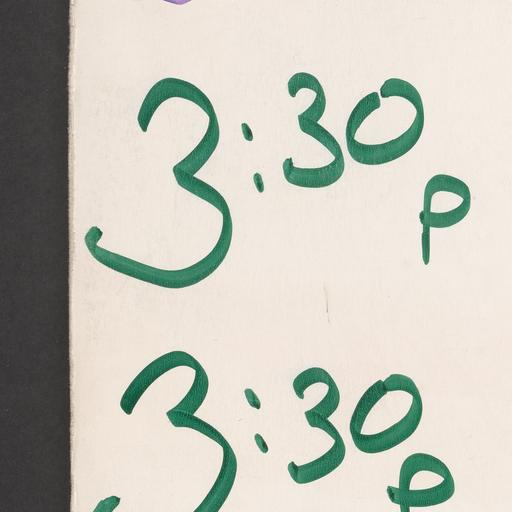 3:30p
3:30p